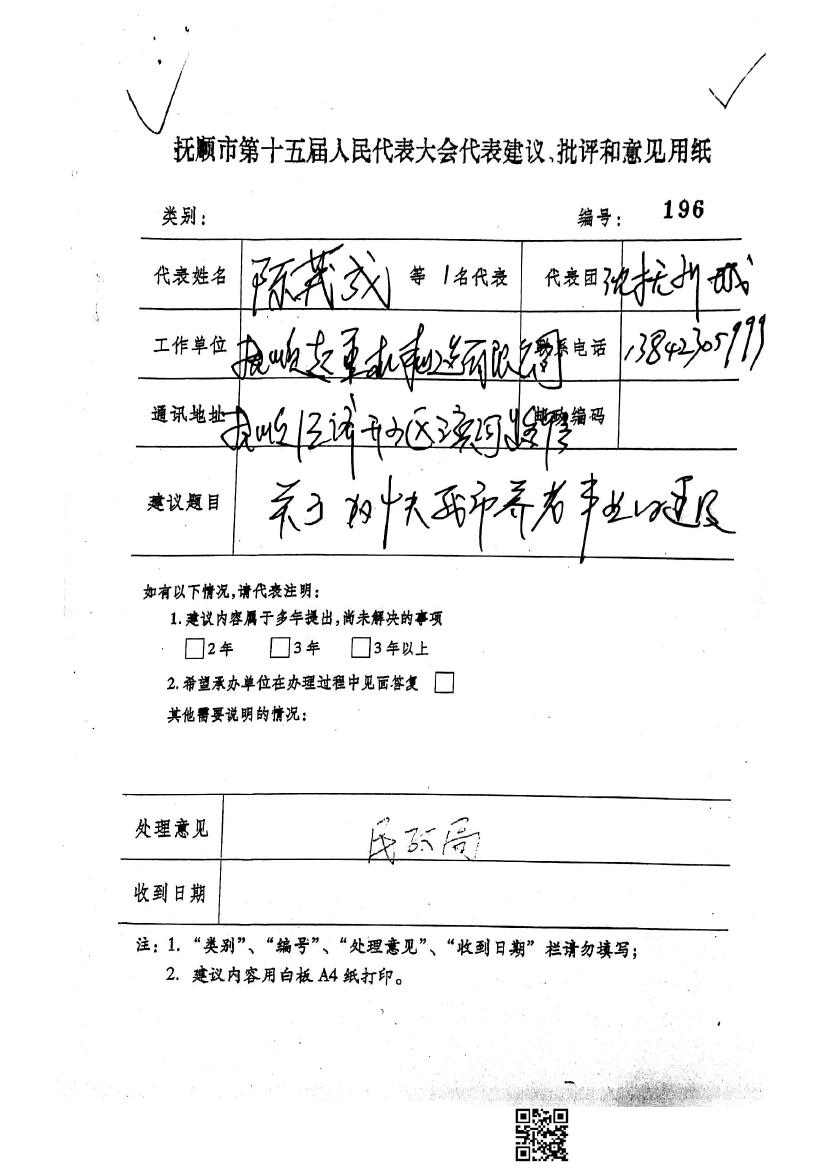 抚顺市第十五届人民代表大会代表建议、批评和意见用纸
类别: 编号: 196
代表姓名 陈茂成 等 1名代表 代表团 沈抚新城
工作单位 抚顺起重机制造有限公司 联系电话 13842305999
通讯地址 抚顺经济开发区 邮政编码
建议题目 关于加大我市养老事业的建议
如有以下情况,请代表注明:
1.建议内容属于多年提出,尚未解决的事项
□2年 □3年 □3年以上
2.希望承办单位在办理过程中见面答复 □
其他需要说明的情况:
处理意见 民政局
收到日期
注: 1. “类别”、“编号”、“处理意见”、“收到日期” 栏请勿填写;
2. 建议内容用白板 A4 纸打印。